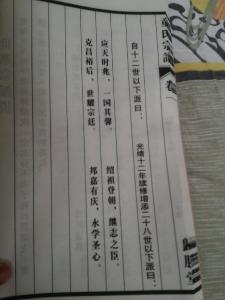 自十二世以下派曰：
应天时兆，一国其馨。
克昌裕后，世耀宗廷。
光绪十二年续修增添二十八世以下派曰：
绍祖登朝，继志之臣。
邦嘉有庆，永学圣心。
氏宗谱
卷